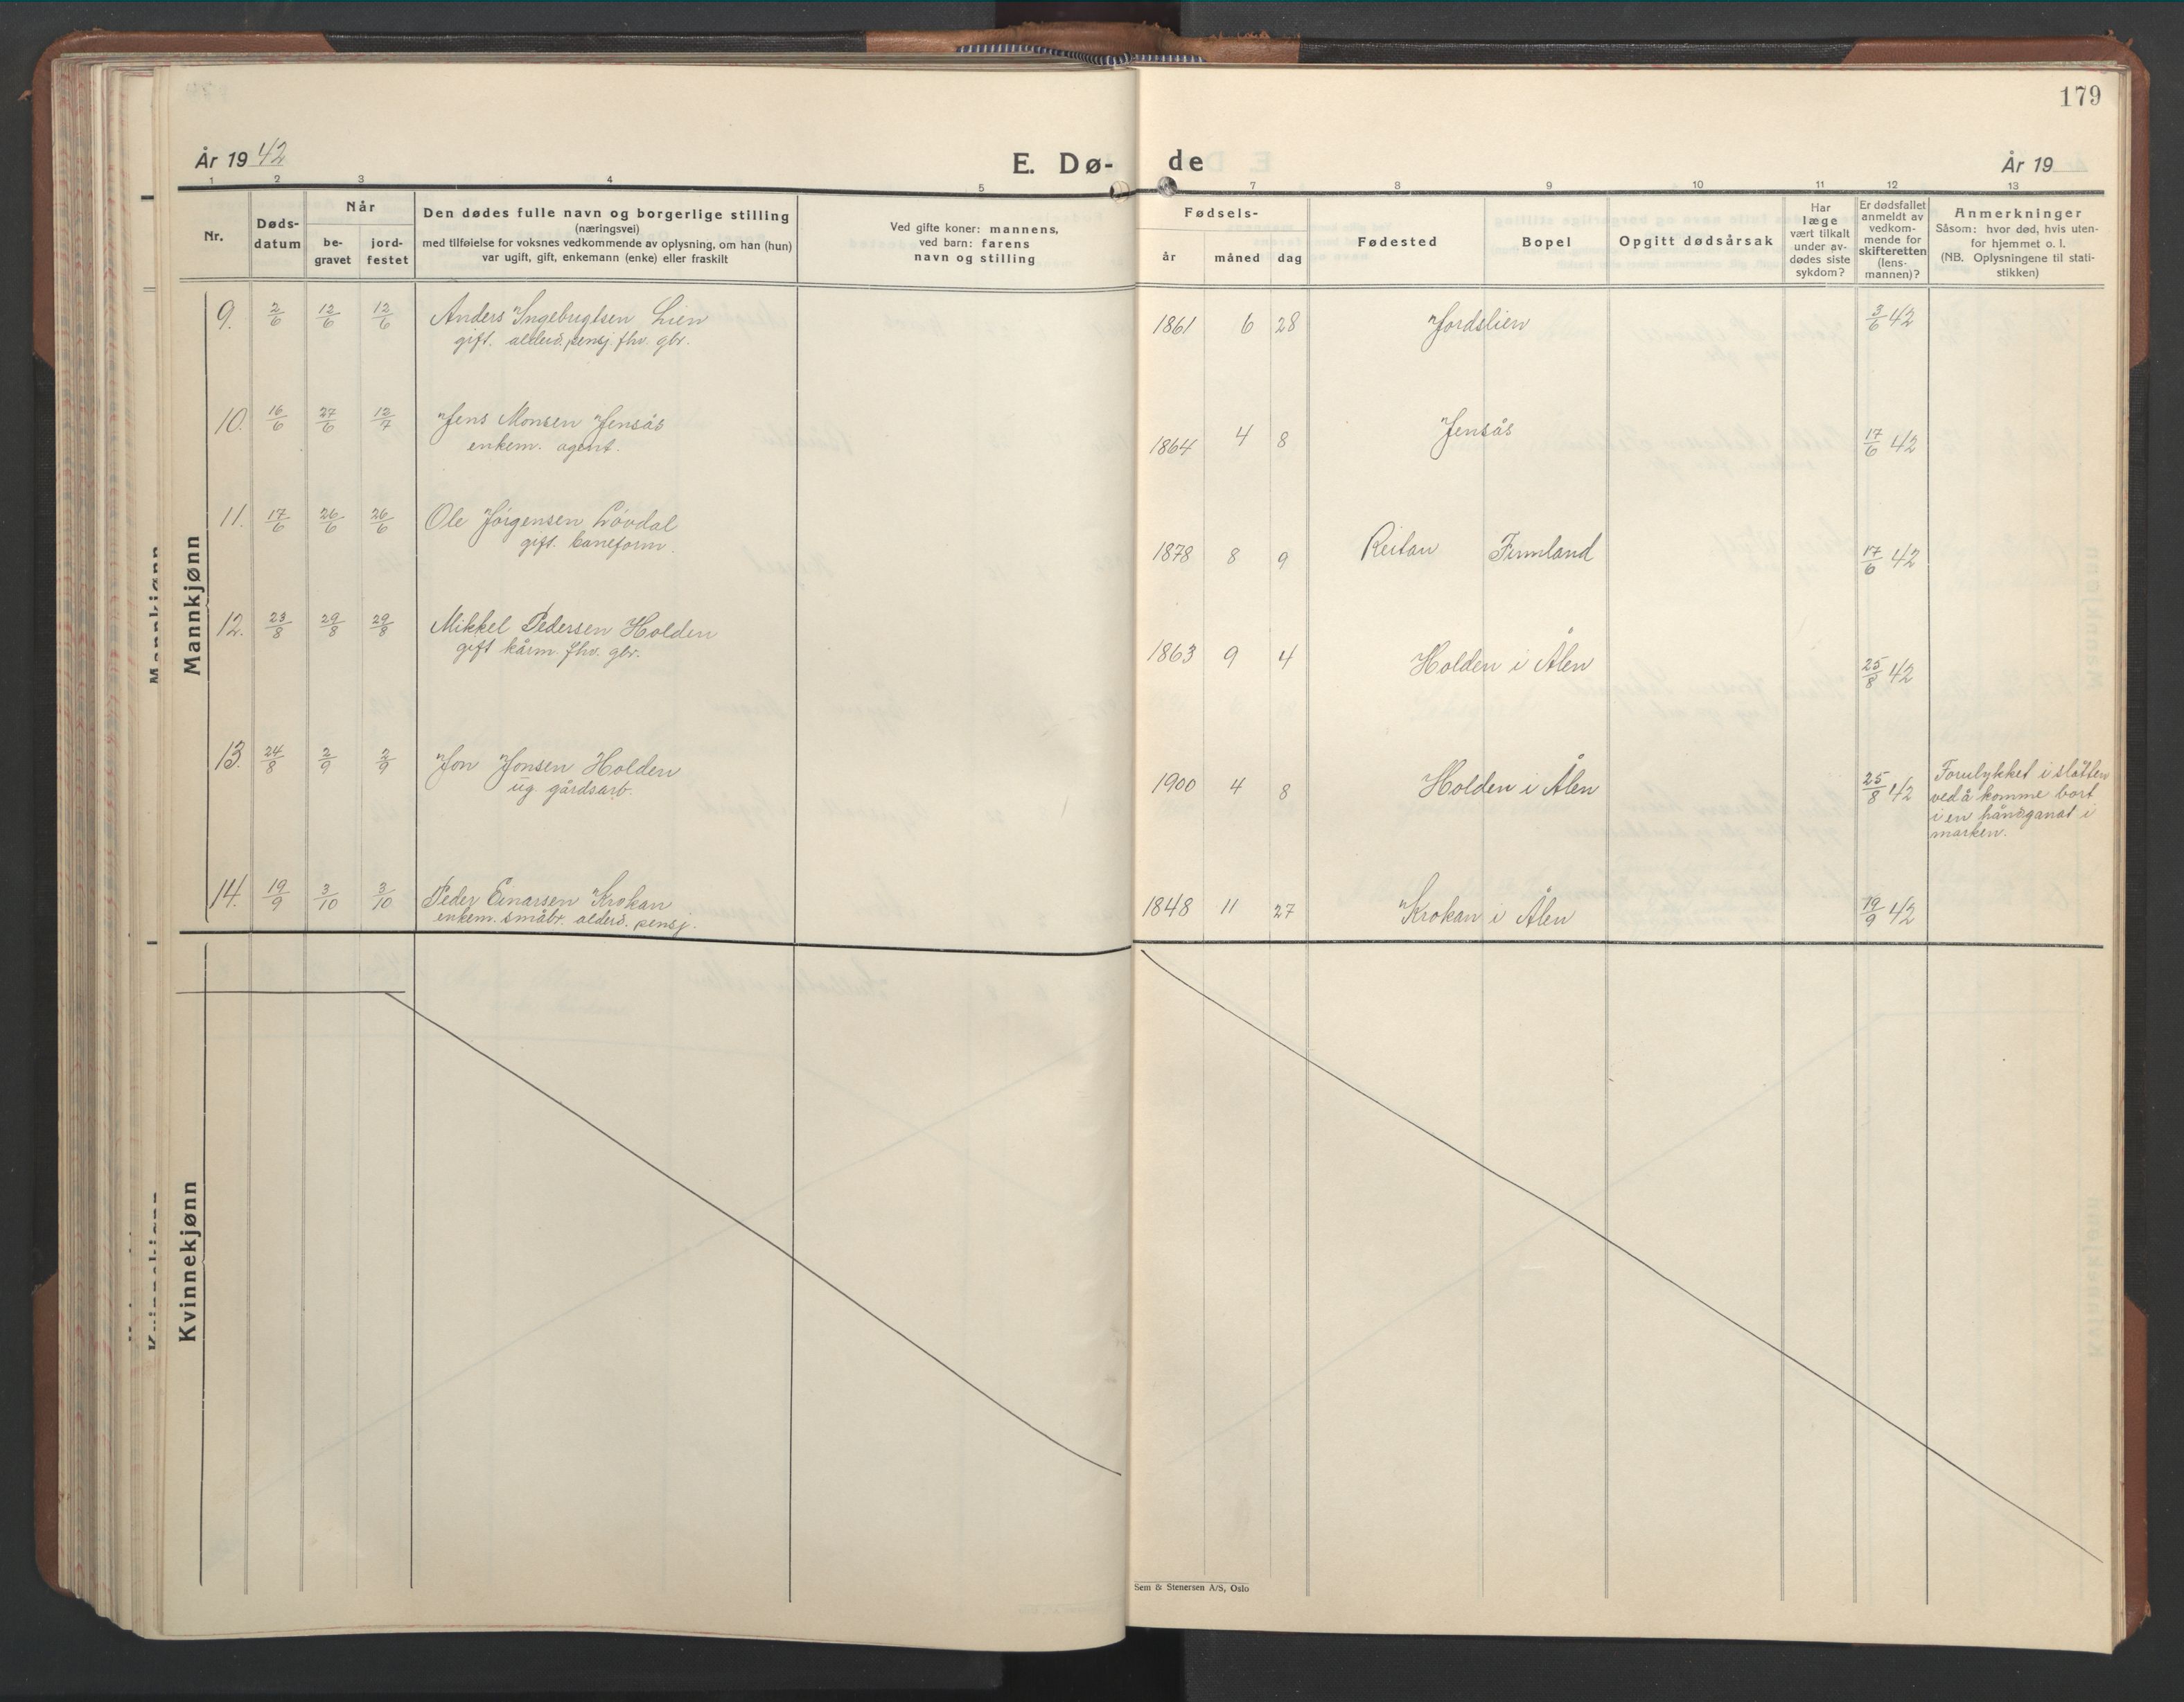 179
År 19 42
E. Dø-
de
År 19
1 2 3 4 5 7 8 9 10 11 12 13
Nr.
Døds-
datum
Når
be-
gravet
jord-
festet
Den dødes fulle navn og borgerlige stilling
(næringsvei)
med tilføielse for voksnes vedkommende av oplysning, om han (hun)
var ugift, gift, enkemann (enke) eller fraskilt
Ved gifte koner: mannens,
ved barn: farens
navn og stilling
Fødsels-
år måned dag
Fødested
Bopel
Opgitt dødsårsak
Har
læge
vært tilkalt
under av-
dødes siste
sykdom?
Er dødsfallet
anmeldt av
vedkom-
mende for
skifteretten
(lens-
mannen)?
Anmerkninger
Såsom: hvor død, hvis uten-
for hjemmet o. l.
(NB. Oplysningene til stati-
stikken)
Mannkjønn
9. 2/6 12/6 12/6 Anders Ingebrigtsen Lien 1861 6 28 Jordslien 3/6 42
gift. alderd. pensj. fhv. gbr.
10. 16/6 27/6 12/7 Jens Monsen Jensås 1864 4 8 Jensås 17/6 42
enkem. agent.
11. 17/6 26/6 26/6 Ole Jørgensen Løvdal 1878 8 9 Reitan Firmland 17/6 42
gift. baneform.
12. 23/8 29/8 29/8 Mikkel Pedersen Holden 1863 9 4 Holden i Ålen 25/8 42
gift kårm. fhv. gbr.
13. 24/8 2/9 2/9 Jon Jonsen Holden 1900 4 8 Holden i Ålen 25/8 42
ug. gårdsarb.
Forulykket i slåtten
ved å komme bort
i en håndganat i
marken.
14. 19/9 3/10 3/10 Peder Einarsen Krokan 1848 11 27 Krokan i Ålen 19/9 42
enkem. småbr. alderd. pensj.
Kvinnekjønn
Sem & Stenersen A/S, Oslo